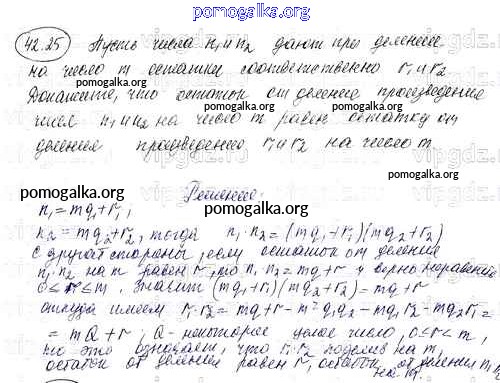 pomogalka.org
42.25 Пусть числа n₁ и n₂ дают при делении
на число m остатки соответственно r₁ и r₂
Докажите, что остаток от деления произведения
чисел n₁ и n₂ на число m равен остатку от
деления произведения r₁ и r₂ на число m
pomogalka.org
Решение:
n₁=mq₁+r₁;
n₂=mq₂+r₂, тогда n₁·n₂=(mq₁+r₁)(mq₂+r₂)
С другой стороны, если остаток от деления
n₁·n₂ на m равен r, то n₁·n₂=mq+r и верно неравенство
0≤r≤m. Значит (mq₁+r₁)(mq₂+r₂)=mq+r
откуда имеем r₁·r₂=mq+r-m²q₁q₂-mq₁r₂-mq₂r₁=
=mQ+r; Q-некоторое целое число, 0≤r<m,
но это означает, что r₁·r₂ поделив на m,
остаток от деления равен r, остаток от деления n₁·n₂
на m.
pomogalka.org